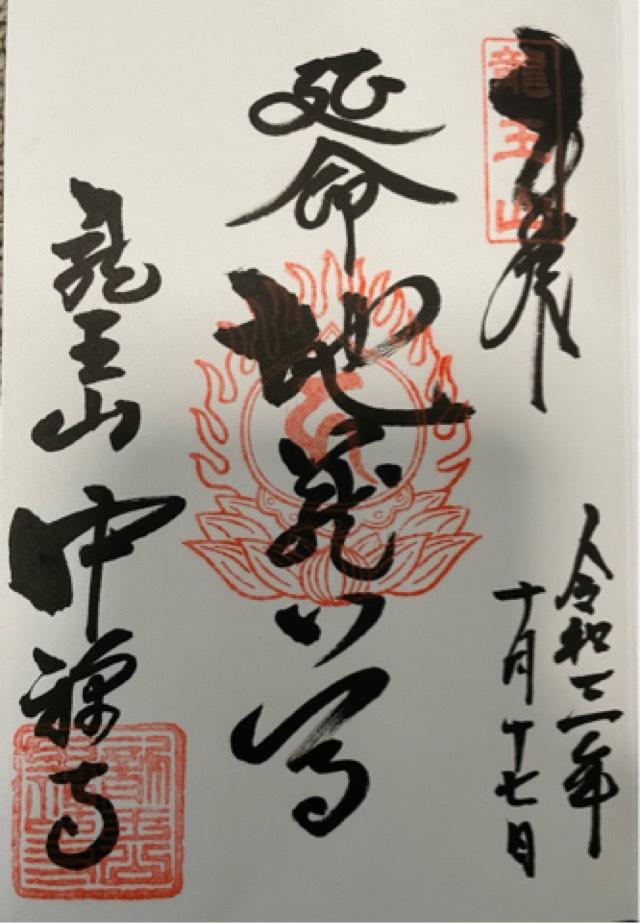 奉拝
龍王山
令和三年
十月十七日
延命
地蔵
龍王山
中禅寺